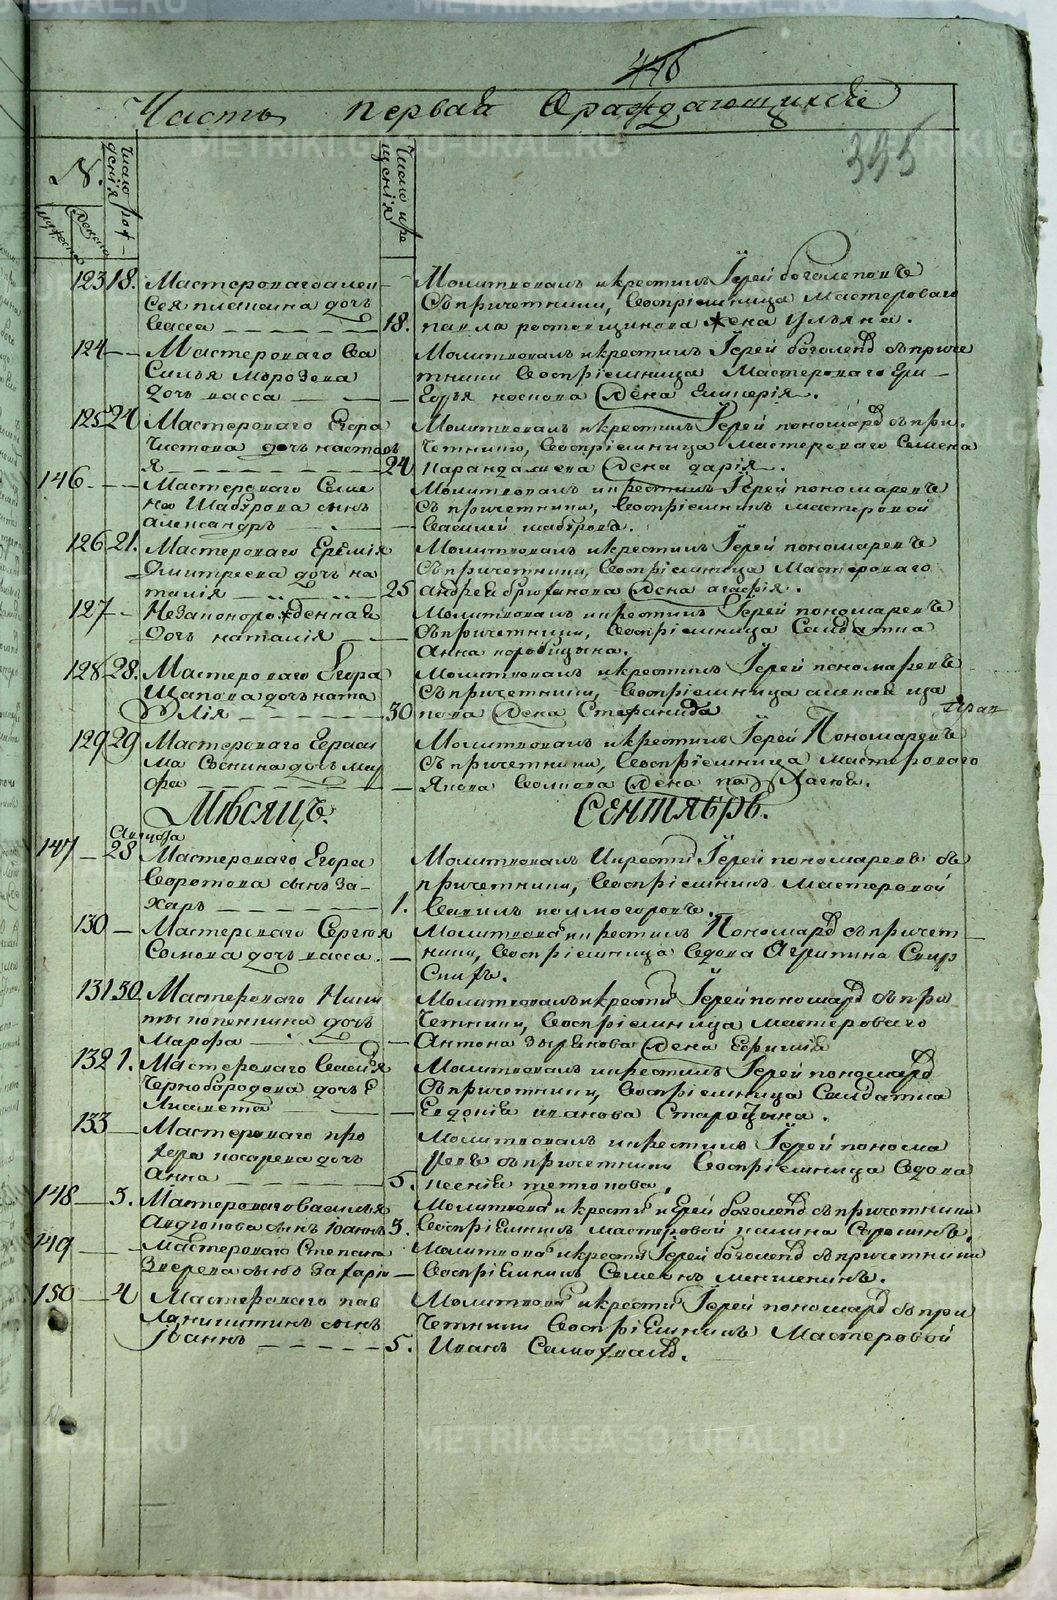 446
Часть первая Ораждающихсѧ
395
№.
Число рож-
денія
Число кре
щенія
123 18. Мастероваго алек-
сея плашина дочь
васса 18.
Молитвовалъ икрестилъ Іерей боголеповъ
съпричетники, восприемница Мастероваго
павла ростовщикова жена Ульяна.
124 Мастероваго Ва
силья Морозова
дочь васса
Молитвовалъ икрестилъ Іерей боголепо съприче
тники Восприемница Мастероваго Гри-
горья носкова жена Гликерія.
125 24 Мастероваго Егора
Чистова дочь настась
я 24
Молитвовалъ икрестилъ Іерей пономаре съпри-
четники, Восприемница мастероваго Семена
жена дарія.
146 Мастероваго Семе
на Шабурова сынъ
александръ
Молитвовалъ икрестилъ Іерей пономаревъ
съ причетники, Восприемникъ мастеровой
Василей шабуровъ.
126 21. Мастероваго Еремія
Дмитреева дочь на
талія 25
Молитвовалъ икрестилъ Іерей пономаревъ
съпричетники, Восприемница Мастероваго
андрея жена агафія.
127 Незаконорожденная
дочь наталія
Молитвовалъ икрестилъ Іерей пономаревъ
съпричетники, Восприемница Солдатка
анна коробицына.
128 28. Мастероваго Егора
Щапова дочь ната
лія 30
Молитвовалъ икрестилъ Іерей пономаревъ
съпричетники, Восприемница алексея ща
пова жена Стефанида
129 29 Мастероваго Гераси
ма Соснина дочь мар
фа
Молитвовалъ икрестилъ Іерей Пономаревъ
съпричетники, Восприемница мастероваго
Якова жена
Мѣсяцъ. Сентябрь.
Августа
147 28 Мастероваго Егора
Воротова сынъ за-
харъ 1.
Молитвовалъ Икрести Іерей пономаревъ съ
причетники, Восприемникъ мастеровой
Вавилъ колмогоровъ.
130 Мастероваго Сергея
Сомова дочь васса.
Молитвова икрестилъ Пономаре съпричет-
ники, Восприемница вдова Агрипина Свир
скихъ.
131 30 Мастероваго Ники
ты попенкина дочь
Марфа
Молитвовалъ икрести Іерей пономаре съпри
четники, Восприемница мастероваго
Антона Зырянова жена Ефимія
132 1. Мастероваго Василія
Чернобородова дочь Е
лисавета
Молитвовалъ икрестилъ Іерей пономаре
съпричетники, Восприемница Солдатка
Евдокія иванова Старицына.
133 Мастероваго про
кофья косарева дочь
анна 5.
Молитвовалъ икрестилъ Іерей понома
ревъ съпричетники Восприемница вдова
ксенія
148 3. Мастероваго василья
сынъ Іоаннъ 3.
Молитвова икрести іерей боголепо съпричетники
Восприемникъ мастеровой
149 Мастероваго Степана
Зверева сынъ Захарія
Молитвова икрести Іерей боголепо съпричетники
Восприемникъ Семенъ меншенинъ.
150 4 Мастероваго пав
ла никитинъ сынъ
іоаннъ 5.
Молитвова икрести Іерей пономаре съпри
четники Восприемникъ Мастеровой
Иванъ
METRIKI.GASO-URAL.RU